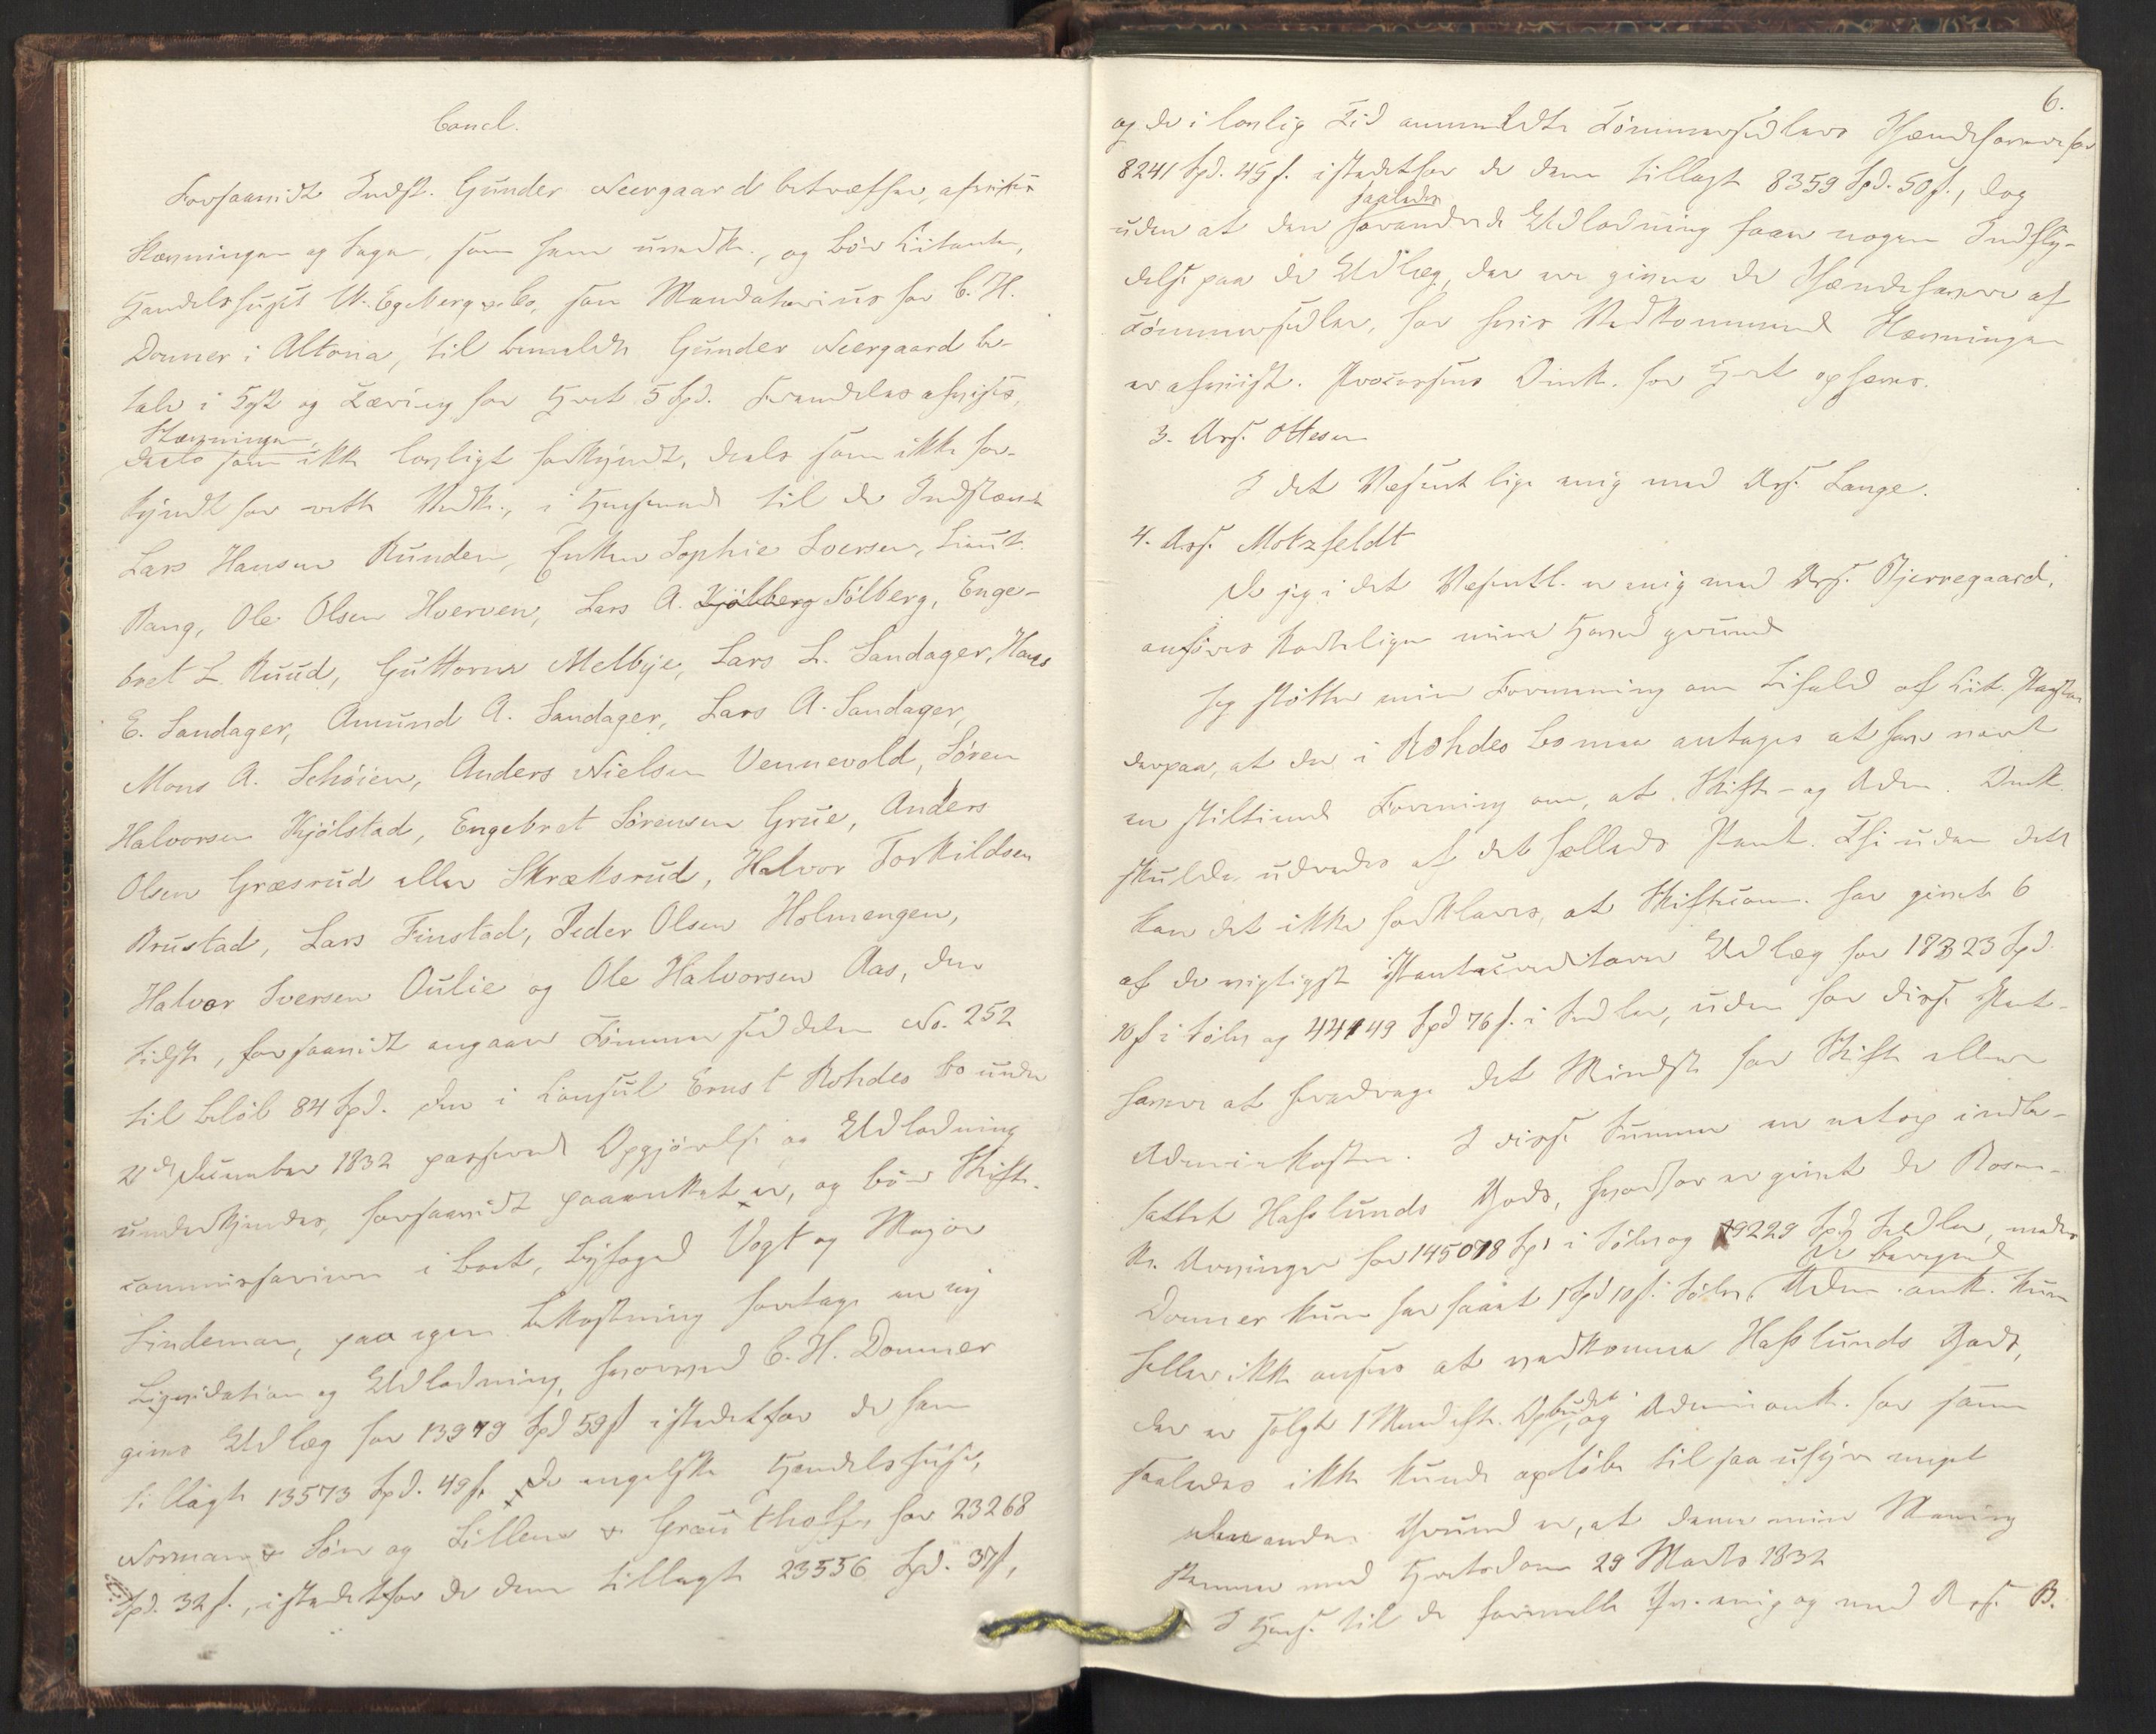 Concl.
Forsaavidt Indst. Gunder Neergaard betræffer, afvises
Stævningen og Sagen, som ham uvedk., og bør Citanten,
Handelshuset W. Egeberg & Co, som Mandatarius for C. H.
Donner i Altona, til bemeldte Gunder Neergaard be-
tale i Kost og Tæring for Hret 5 Spd. Fremdeles afvises,
Stævningen,
deels som ikke lovligt forkyndt, deels som ikke for-
kyndt for rette Vedk., i Henseende til de Indstævnte
Lars Hansen Runden, Enken Sophie Iversen, Lieut.
Bang, Ole Olsen Hverven, Lars A. Kjølberg Fölberg, Enge-
bret L. Ruud, Guttorm Melbye, Lars L. Sandager, Hans
E. Sandager, Amund A. Sandager, Lars A. Sandager,
Mons A. Schøien, Anders Nielsen Vennevold, Søren
Halvorsen Kjølstad, Engebret Sørensen Grue, Anders
Olsen Græsrud eller Skræksrud, Halvor Torkildsen
Brustad, Lars Finstad, Peder Olsen Holmengen,
Halvor Iversen Oulie og Ole Halvorsen Aas, den
Sidste, forsaavidt angaaer Tömmerseddelen No. 252
til Beløb 84 Spd. Den i Consul Ernst Rohdes Bo under
21de December 1832 passerede Opgjörelse og Udlodning
underkjendes, forsaavidt paaanket er, og bør Skifte-
commissarierne i Boet, Byfoged Vogt og Major
Lindeman, paa egen Bekostning foretage en ny
Liqvidation og Udlodning, hvorved C. H. Donner
gives Udlæg for 13979 Spd 59 s istedetfor de ham
tillagte 13573 Spd. 49 s. de engelske Handelshuse,
Norman & Søn og Sillem & Grauthoff, for 23268
Spd. 32 s., istedetfor de dem tillagte 23556 Spd. 37 s,
6.
og de i lovlig Tid anmeldte Tömmersedlers Ihændehavere for
8241 Spd. 45 s. istedetfor de dem tillagte 8359 Spd. 50 s., dog
saaledes
uden at den forandrede Udlodning faaer nogen Indfly-
delse paa de Udlæg, der ere givne de Ihændehavere af
Tömmersedler, for hvis Vedkommende Stævningen
er afviist. Processens Omk. for Hret ophæves.
3. Ass. Ottesen
I det Væsentlige enig med Ass. Lange.
4. Ass. Motzfeldt
Da jeg i det Væsentl. er enig med Ass. Bjerregaard,
anføres korteligen mine Hovedgrunde
Jeg støtter min Formening om Bifald af Cit. Paastand
derpaa, at der i Rohdes Bo maa antages at have været
en stiltiende Forening om, at Skifte- og Adm. Omk.
skulde udredes af det fælleds Pant. Thi uden dette
kan det ikke forklares, at Skiftecomm. har givet 6
af de vigtigste Pantecreditorer Udlæg for 17323 Spd
10 s i Sölv og 44149 Spd 76 s. i Sedler, uden for disse Pant-
havere at fradrage det Mindste for Skifte eller
Adminkostn. I disse Summer er netop indbe-
fattet Hafslunds Gods, hvorfor er givet de Rosen-
kr. Arvinger for 145078 Spd i Sölv og 19229 Spd Sedler, medens
de beregnede
Donner kun har faaet 1 Spd 10 s. Sölv. Adm. omk. kun
heller ikke ansees at vedkomme Hafslunds Gods,
der er solgt 1 Maaned efter Opbudet, og Adminomk. for samme
saaledes ikke kunde opløbe til saa uhyre meget
En anden Grund er, at denne min Mening
stemmer med Hretsdom 29 Marts 1832
I Hens. til de formelle Sp. enig og med Ass. B.